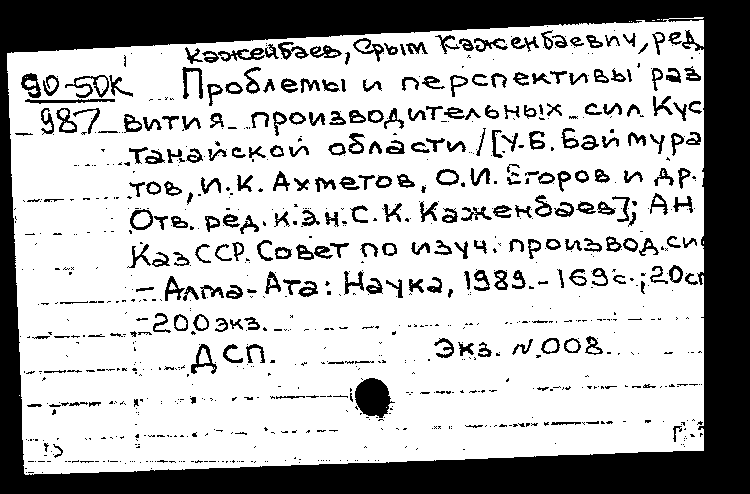 Кажейбаев, Срым Каженбаевич, ред
90-50К Проблемы и перспективы раз
987 вития производительных сил Кус
танайской области /[У.Б. Баймура
тов, И.К. Ахметов, О.И. Егоров и др.;
Отв. ред. к.э.н. С.К. Каженбаев]; АН
КазССР. Совет по изуч. производ. си
- Алма-Ата: Наука, 1989. - 169с.; 20с
- 200 экз.
ДСП. Экз. N 008